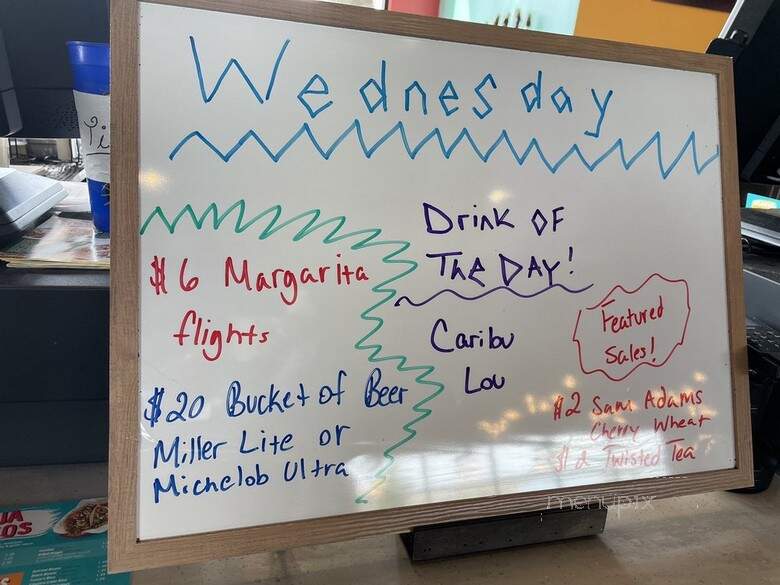 Wednesday
$6 Margarita
flights
$20 Bucket of Beer
Miller Lite or
Michelob Ultra
Drink OF
The DAY!
Caribu
Lou
Featured
Sales!
$2 Sam Adams
Cherry Wheat
Twisted Tea
menupix